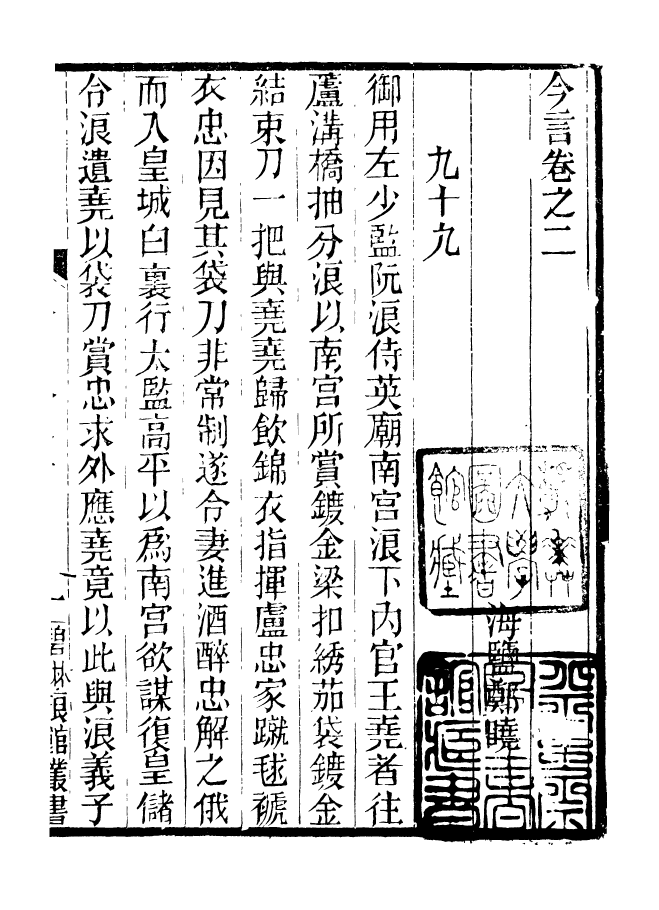 今言卷之二
海鹽鄭曉
九十九
御用左少監阮浪侍英廟南宮浪下內官王堯者往
蘆溝橋抽分浪以南宮所賞鍍金梁扣綉茄袋鍍金
結束刀一把與堯堯歸飲錦衣指揮盧忠家蹴毬褫
衣忠因見其袋刀非常制遂令妻進酒醉忠解之俄
而入皇城白裏行太監高平以爲南宮欲謀復皇儲
令浪遺堯以袋刀賞忠求外應堯竟以此與浪義子
一
碧林琅館叢書
燕京大學
圖書
館藏